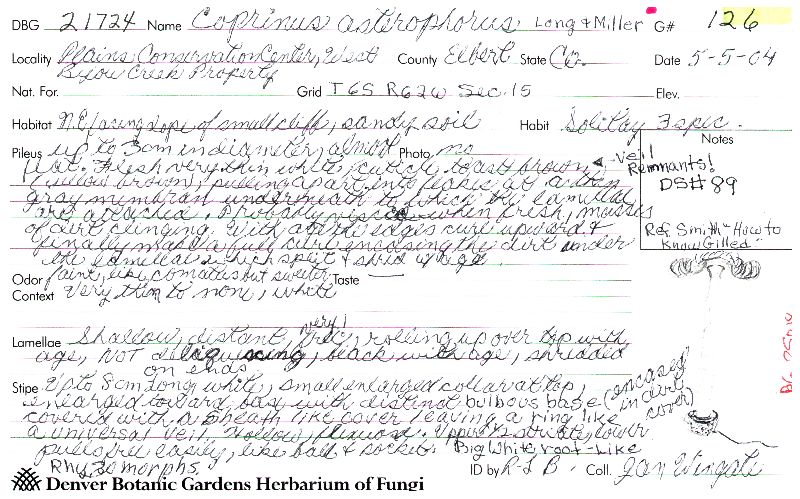 DBG 21724 Name Coprinus asterophorus Long & Miller G# 126
Locality Plains Conservation Center, West County Elbert State Co. Date 5-5-04
Bijou Creek Property
Nat. For. Grid T6S R62W Sec. 15 Elev.
Habitat N.E. facing slope of small cliff, sandy soil Habit Solitay 3 spec.
Notes
Pileus up to 3cm in diameter, almost Photo no
flat. Flesh very thin white, cuticle toast brown
Veil Remnants!
DS# 89
(yellow brown), pulling apart into flakes at a thin
gray membran underneath to which the lamellae
are attached. Probably viscid when fresh, masses
of dirt clinging. With age the edges curl upward &
finally make a full curl encasing the dirt under
the lamellae which split & shrid w/age
Ref Smith "How to
Know Gilled"
Odor faint, like comatus but sweeter Taste —
Context Very thin to none, white
Lamellae Shallow, distant, very free, rolling up over top with
age, NOT deliquescing, black with age, shredded
on ends
Stipe Up to 8cm long white, small enlarged collar at top,
enlarged toward base with distinct bulbous base (encased in dirt cover)
covered with a sheath like cover leaving a ring like
a universal veil. Hollow, flexuous. Upper ½ striate, lower
pulls free easily, like ball & socket. Big white root-like
Rhyzomorphs.
ID by R-L B- Coll. Jan Wingate
Denver Botanic Gardens Herbarium of Fungi